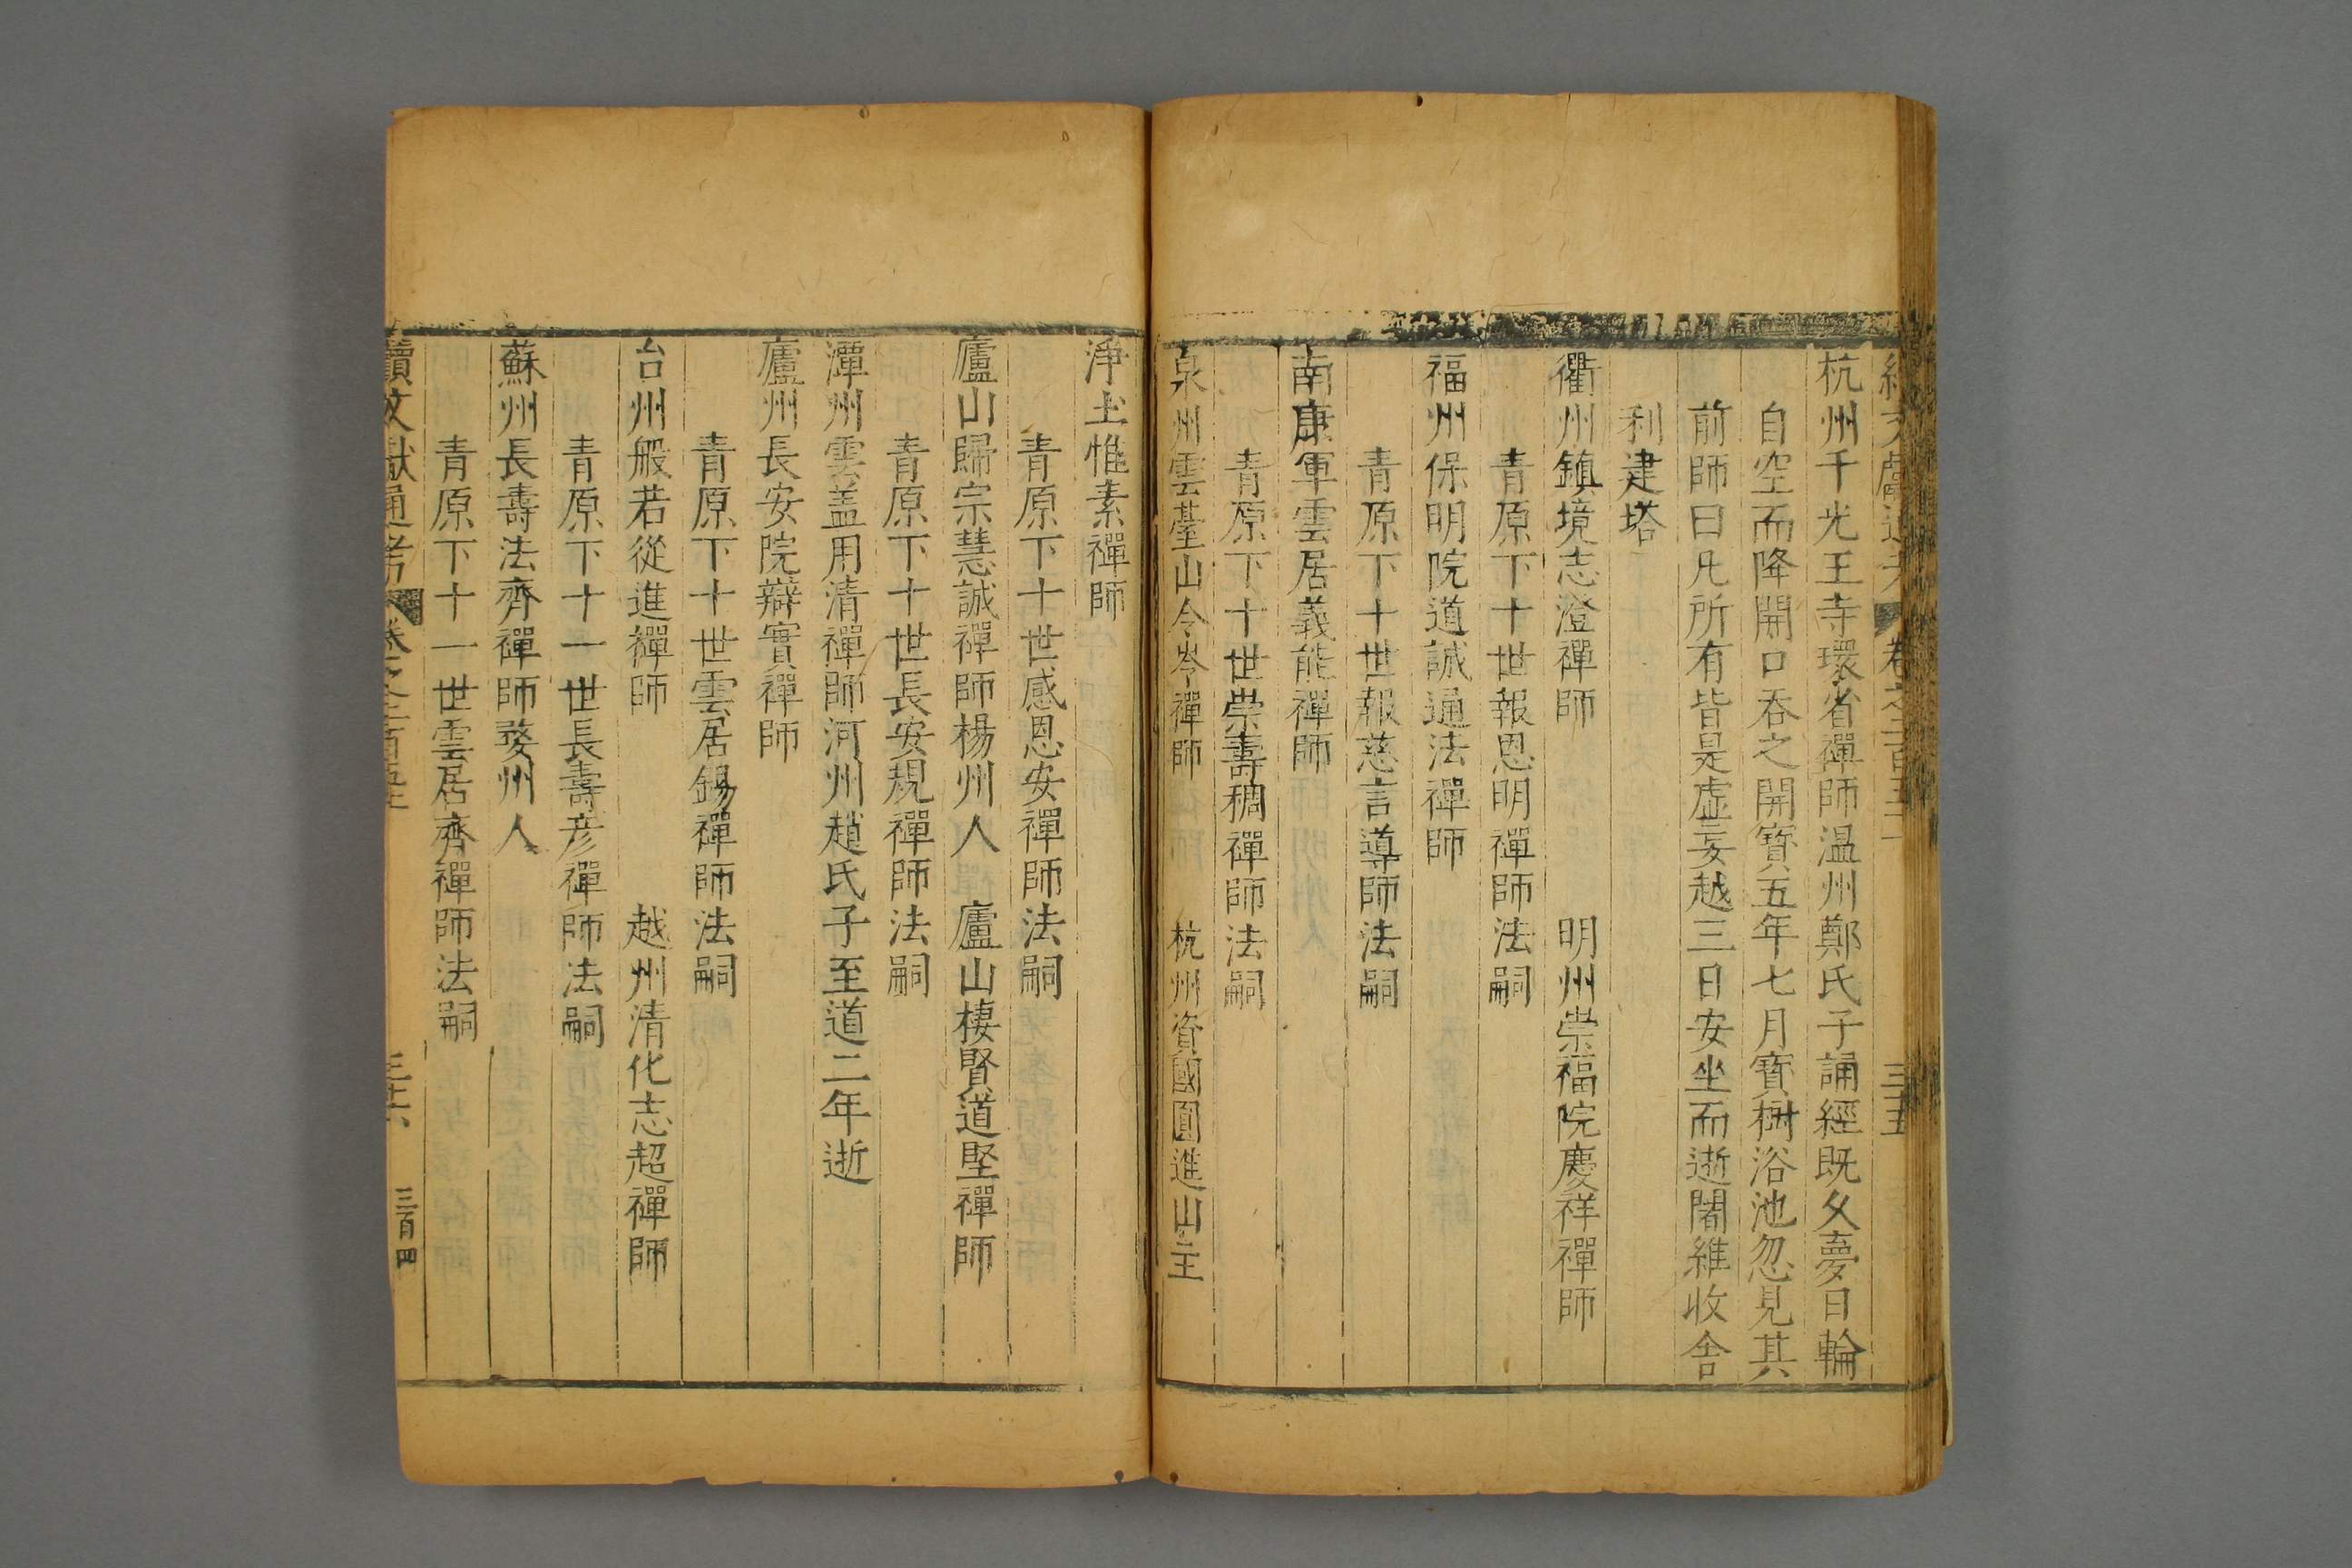 續文獻通考 卷之二百五十 三十五
杭州千光王寺環省禪師温州鄭氏子誦經既夂夢日輪
自空而降開口吞之開寶五年七月寶樹浴池忽見其
前師曰凡所有皆是虛妄越三日安坐而逝闍維收舍
利建塔
衢州鎮境志澄禪師 明州崇福院慶祥禪師
青原下十世報恩明禪師法嗣
福州保明院道誠通法禪師
青原下十世報慈言導師法嗣
南康軍雲居義能禪師
青原下十世崇壽稠禪師法嗣
泉州雲臺山令岑禪師 杭州資國圓進山主
淨土惟素禪師
青原下十世感恩安禪師法嗣
廬山歸宗慧誠禪師楊州人 廬山棲賢道堅禪師
青原下十世長安規禪師法嗣
潭州雲盖用清禪師河州趙氏子至道二年逝
廬州長安院辯實禪師
青原下十世雲居錫禪師法嗣
台州般若從進禪師 越州清化志超禪師
青原下十一世長壽彦禪師法嗣
蘇州長壽法齊禪師婺州人
青原下十一世雲居齊禪師法嗣
續文獻通考 卷之二百五十 三十六 三百四